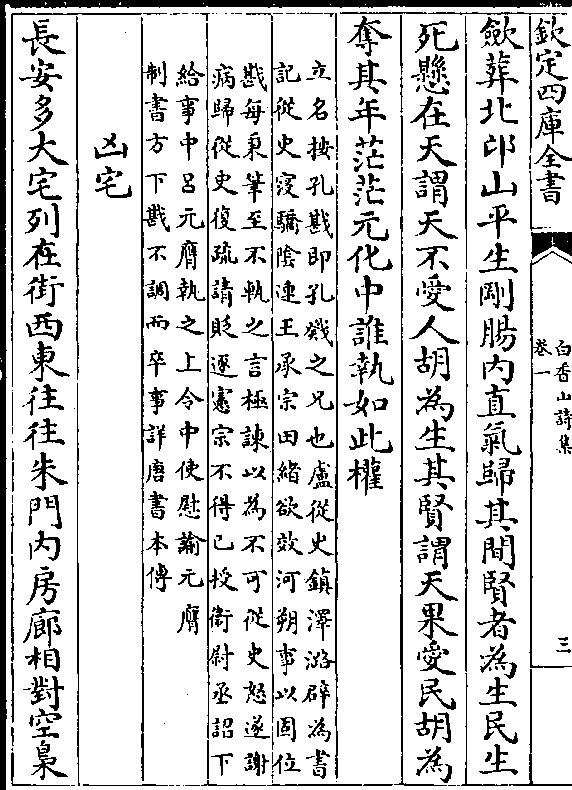 欽定四庫全書
白香山詩集
卷一
三
歛葬北邙山平生剛腸内直氣歸其間賢者為生民生
死懸在天謂天不愛人胡為生其賢謂天果愛民胡為
奪其年茫茫元化中誰執如此權
立名按孔戡即孔戣之兄也盧從史鎮澤潞辟為書
記從史寖驕隂連王承宗田緒欲效河朔事以固位
戡每秉筆至不軌之言極諫以為不可從史怒遂謝
病歸從史復疏請貶逐憲宗不得已授衛尉丞詔下
給事中吕元膺執之上令中使慰諭元膺
制書方下戡不調而卒事詳唐書本傳
凶宅
長安多大宅列在街西東往往朱門内房廊相對空梟